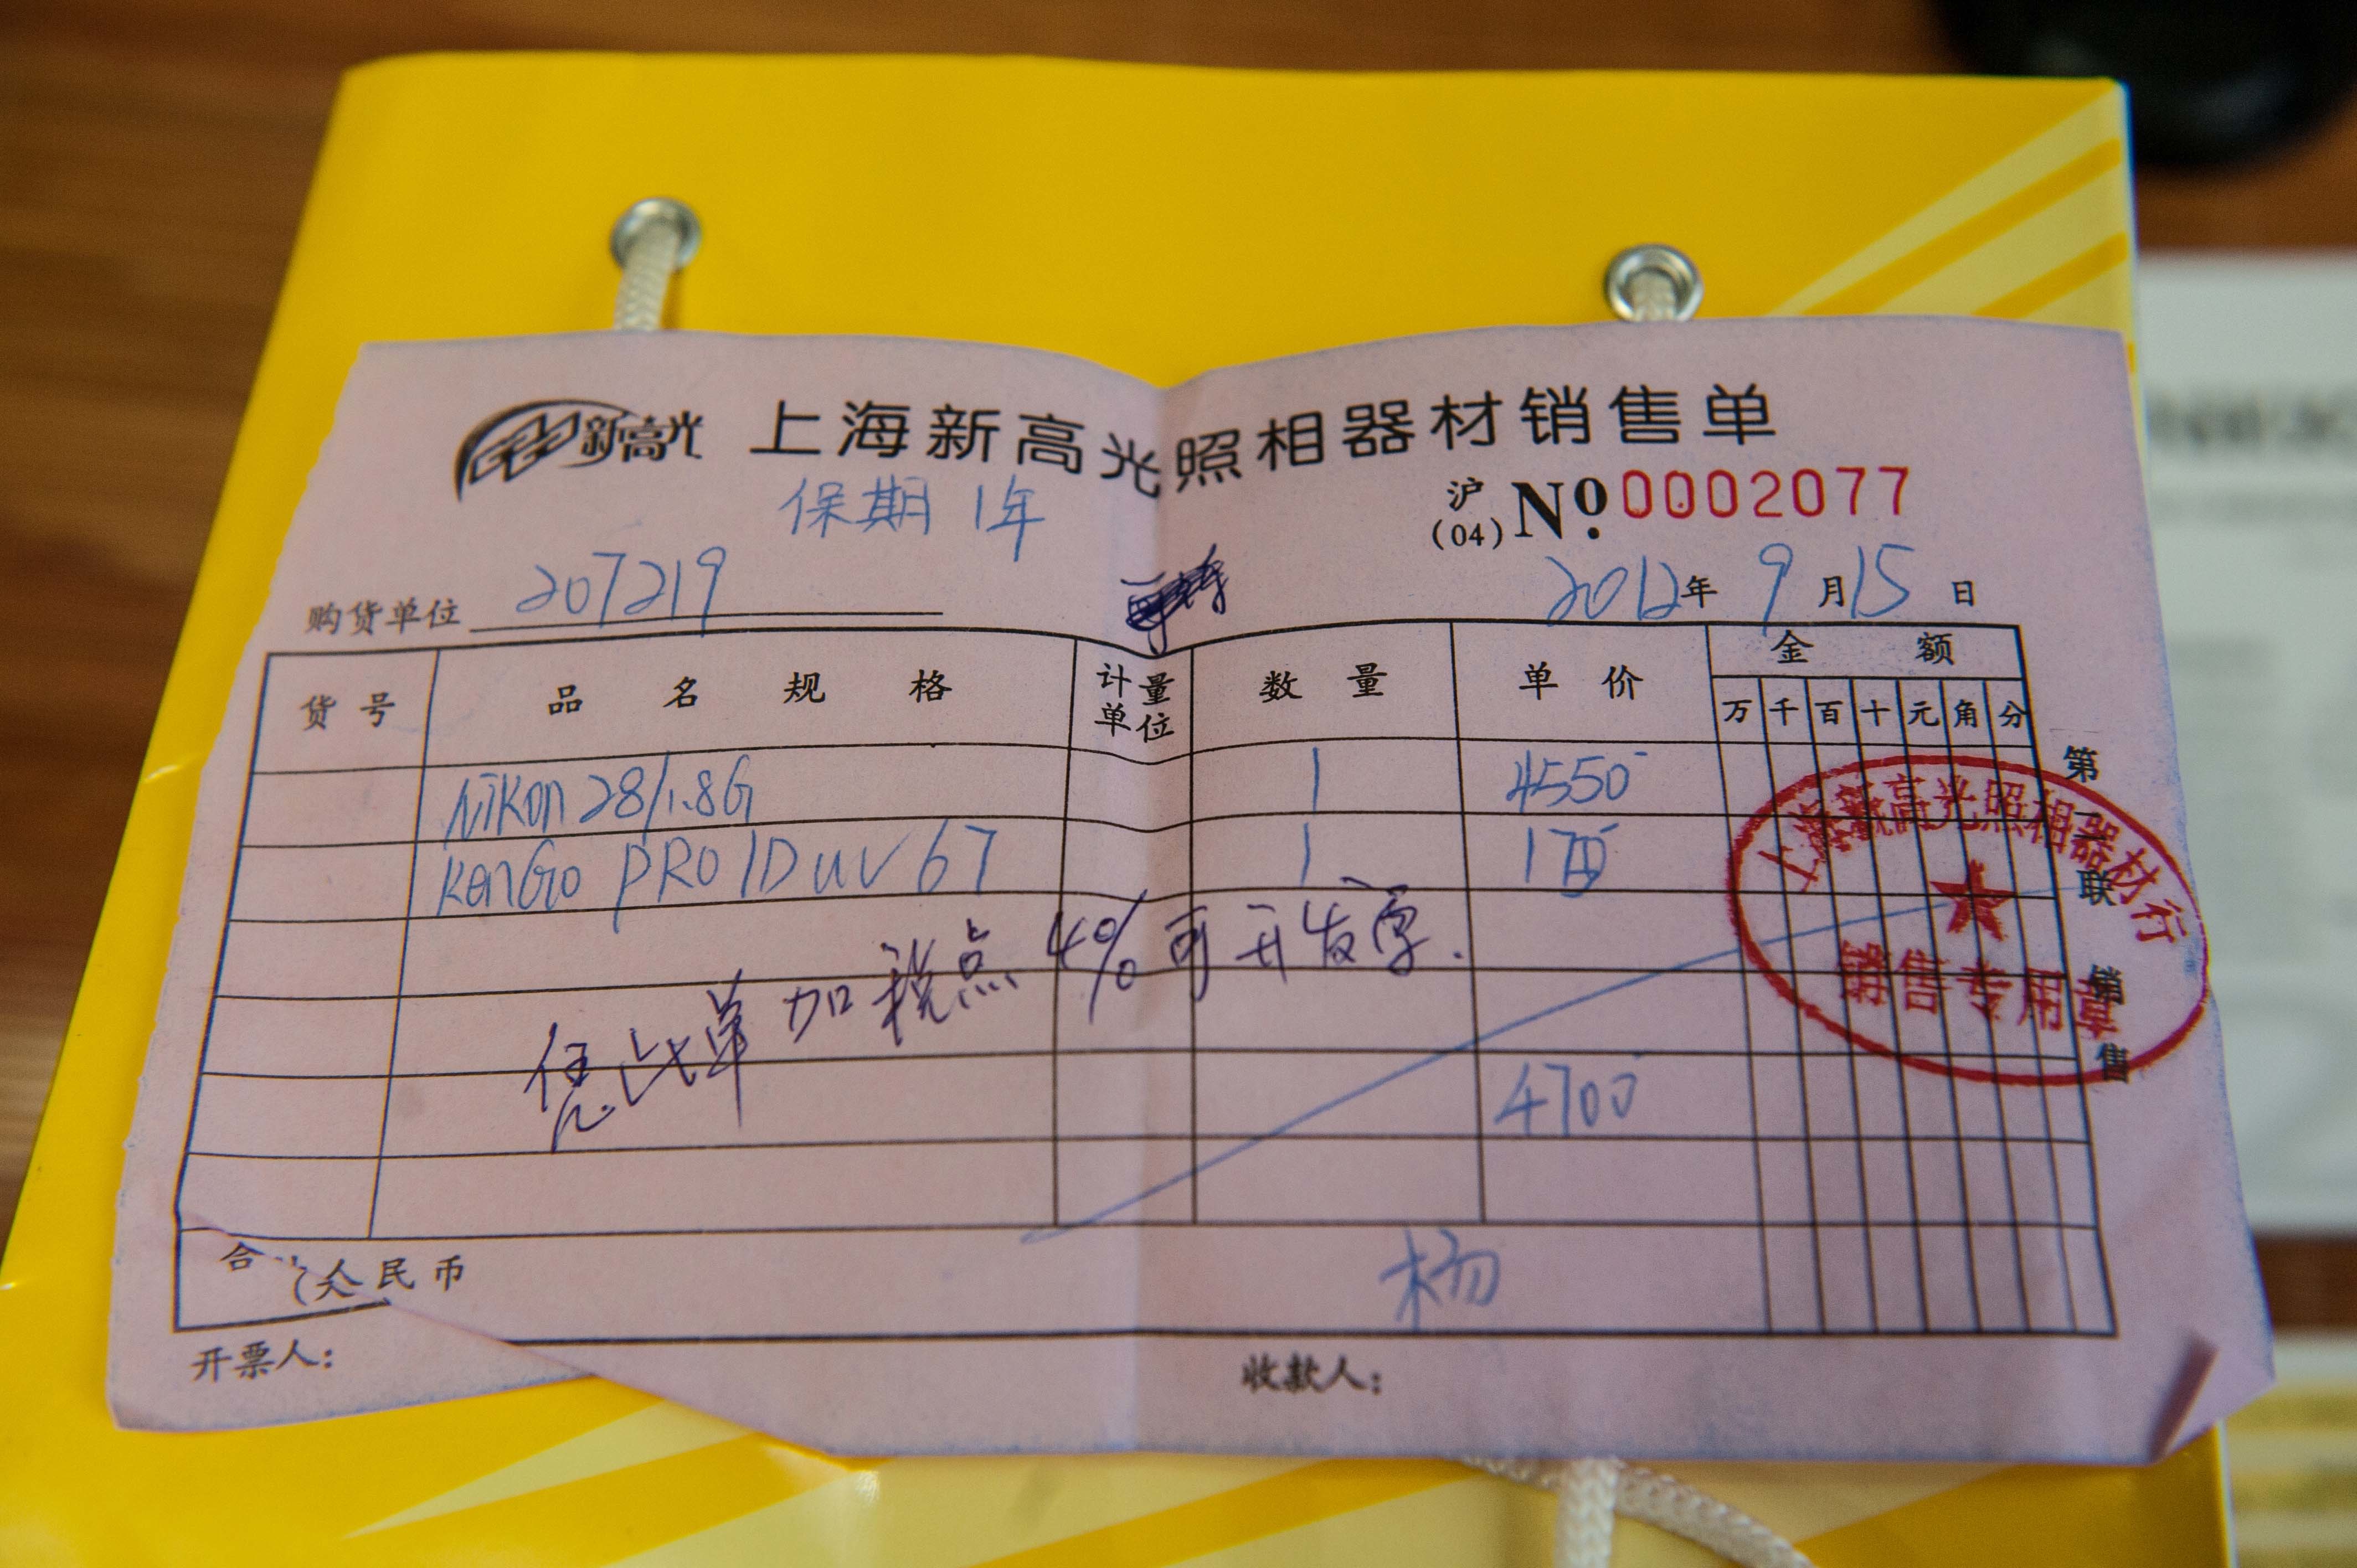 新高光 上海新高光照相器材销售单
保期 1年
沪(04) No. 0002077
购货单位 207219
2012年 9月15日
货号 品名规格 计量单位 数量 单价 金额
万 千 百 十 元 角 分
Nikon 28/1.8G 1 4550
KenGo PRO 1D UV 67 1
凭此单加税点 4% 可开发票.
4700
第一联 销售
上海新高光照相器材行
销售专用章
合 (人民币
杨
开票人: 收款人: